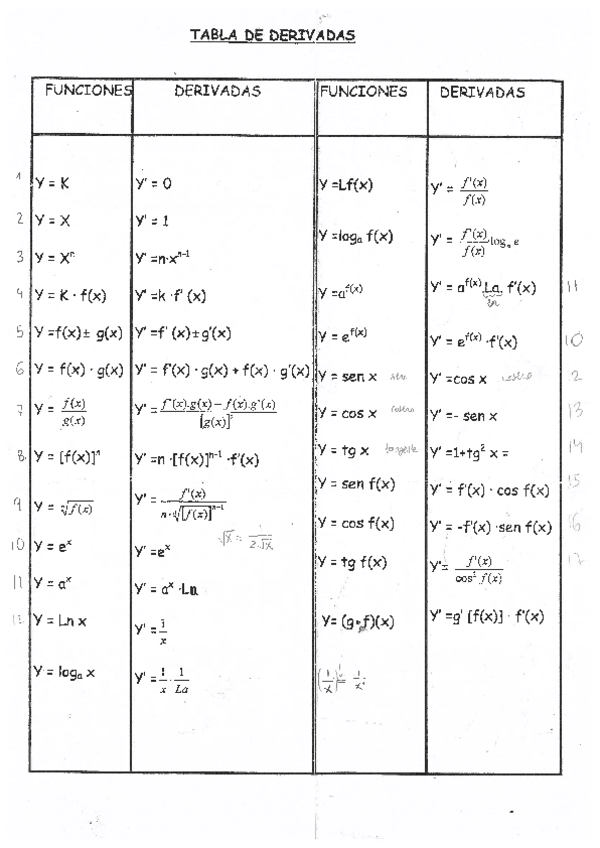 TABLA DE DERIVADAS
FUNCIONES DERIVADAS FUNCIONES DERIVADAS
1 Y = K Y' = 0 Y =Lf(x) Y' = f'(x)/f(x)
2 Y = X Y' = 1 Y =logₐ f(x) Y' = f'(x)/f(x) logₐ e
3 Y = Xⁿ Y' =n·xⁿ⁻¹ Y =a^f(x) Y' = a^f(x) La f'(x) 11
4 Y = K · f(x) Y' =k ·f' (x) Y = e^f(x) Y' = e^f(x) ·f'(x) 10
5 Y =f(x)± g(x) Y' =f' (x)±g'(x) Y = sen x Y' =cos x 2
6 Y = f(x) · g(x) Y' = f'(x) · g(x) + f(x) · g'(x) Y = cos x Y' =- sen x 13
7 Y = f(x)/g(x) Y' = f'(x).g(x) – f(x).g'(x)/[g(x)]² Y = tg x Y' =1+tg² x = 14
8 Y = [f(x)]ⁿ Y' =n ·[f(x)]ⁿ⁻¹ ·f'(x) Y = sen f(x) Y' = f'(x) · cos f(x) 15
9 Y = ⁿ√f(x) Y' = f'(x)/n·ⁿ√[f(x)]ⁿ⁻¹ Y = cos f(x) Y' = -f'(x) ·sen f(x) 16
10 Y = eˣ Y' =eˣ √x = 1/2·√x Y = tg f(x) Y'= f'(x)/cos² f(x) 17
11 Y = aˣ Y' = aˣ ·Ln Y= (g∘f)(x) Y' =g' [f(x)] · f'(x)
12 Y = Ln x Y' = 1/x
Y = logₐ x Y' = 1/x · 1/La